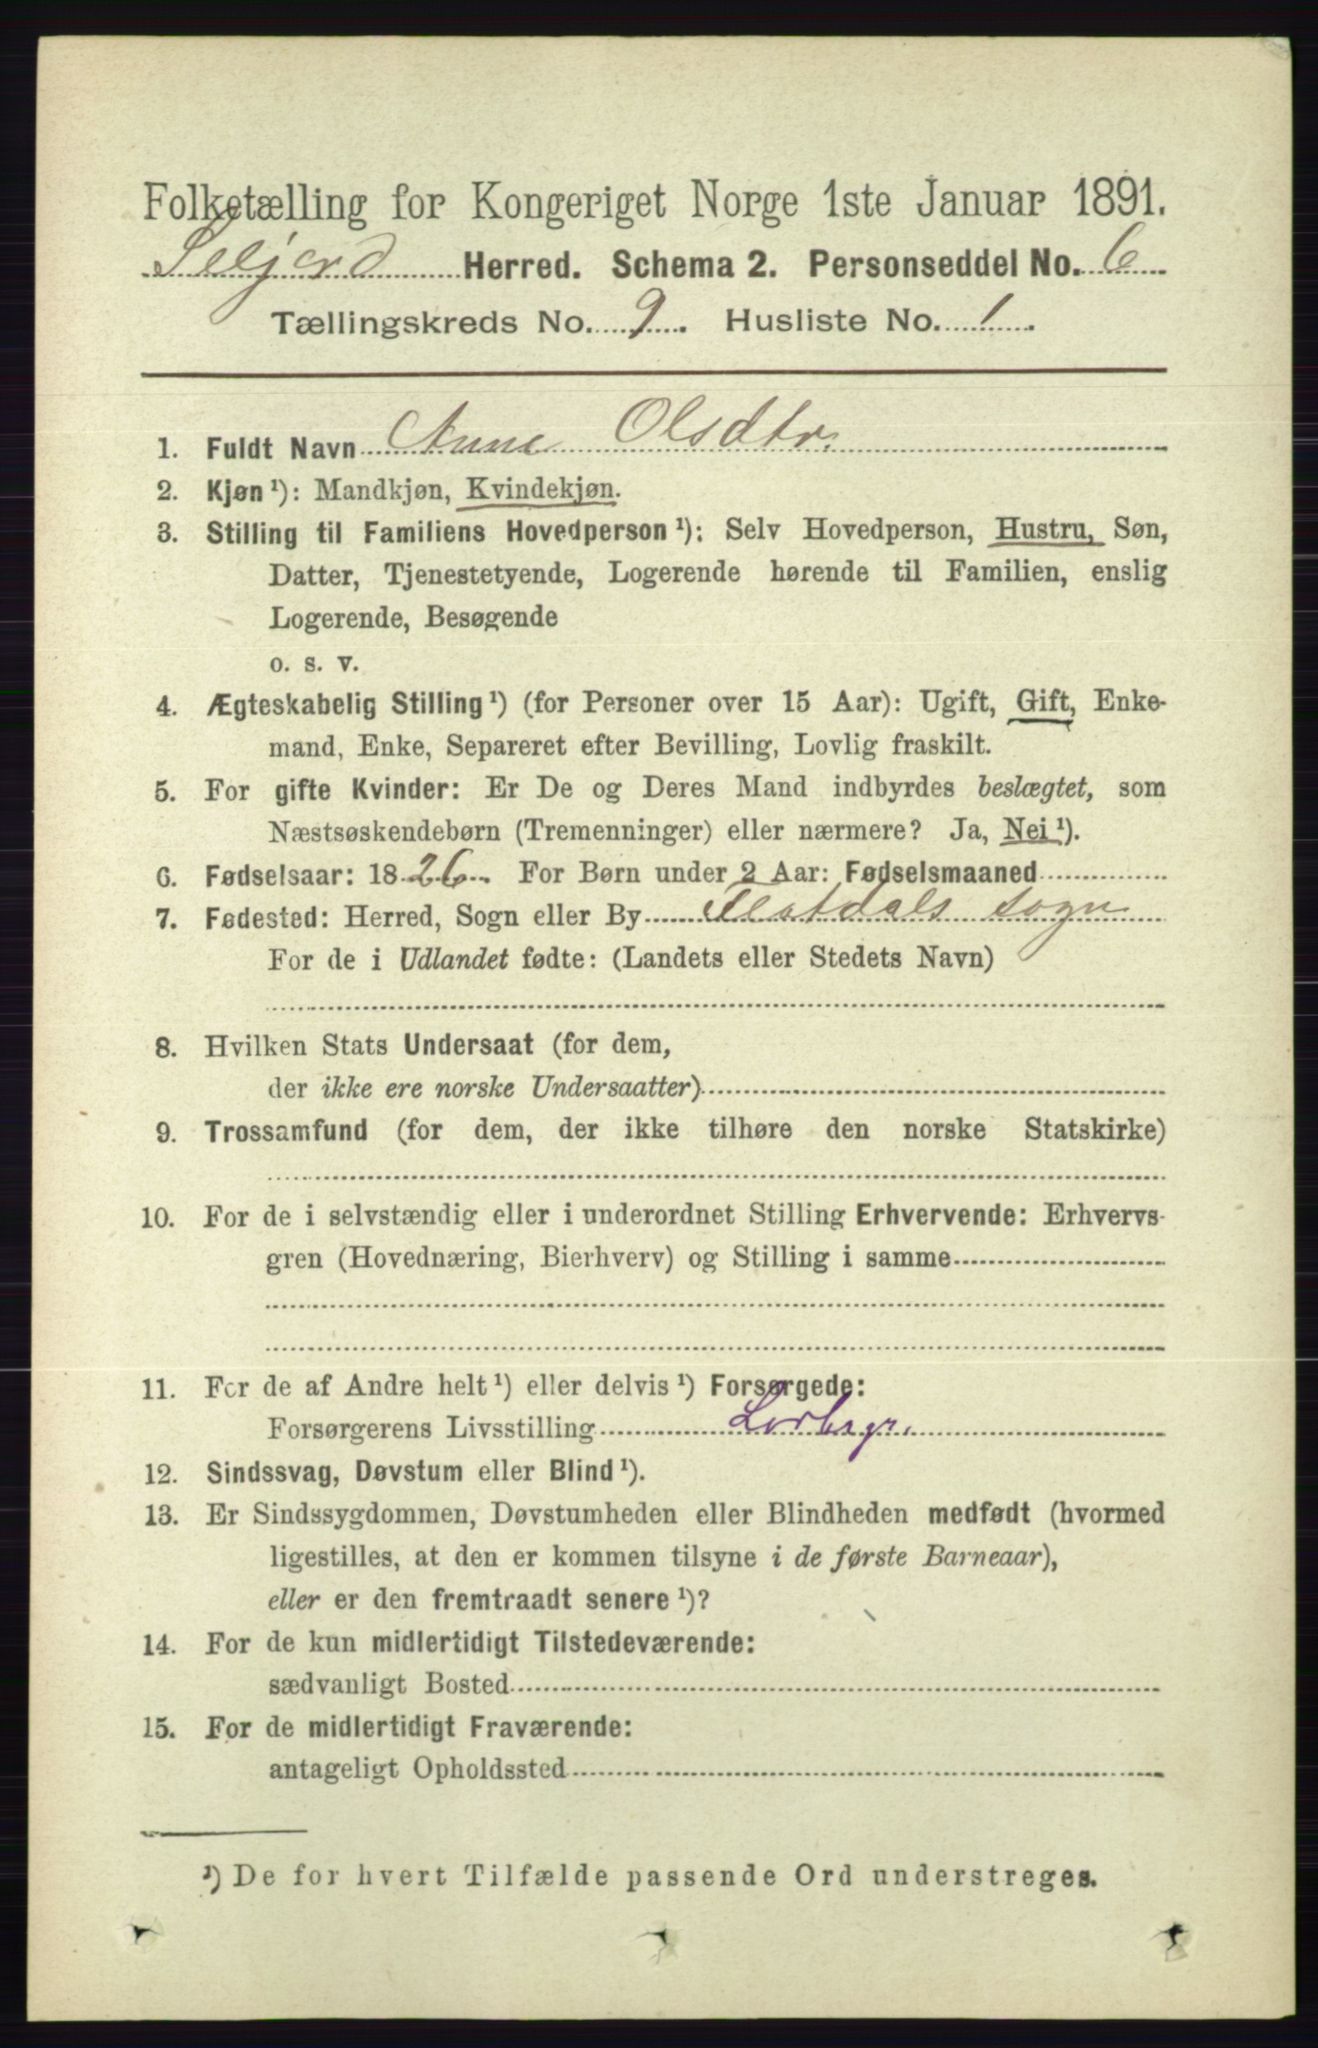 Folketælling for Kongeriget Norge 1ste Januar 1891.
Seljord Herred. Schema 2. Personseddel No. 6
Tællingskreds No. 9. Husliste No. 1.
1. Fuldt Navn Anne Olsdtr.
2. Kjøn¹): Mandkjøn, Kvindekjøn.
3. Stilling til Familiens Hovedperson¹): Selv Hovedperson, Hustru, Søn,
Datter, Tjenestetyende, Logerende hørende til Familien, enslig
Logerende, Besøgende
o. s. v.
4. Ægteskabelig Stilling¹) (for Personer over 15 Aar): Ugift, Gift, Enke-
mand, Enke, Separeret efter Bevilling, Lovlig fraskilt.
5. For gifte Kvinder: Er De og Deres Mand indbyrdes beslægtet, som
Næstsøskendebørn (Tremenninger) eller nærmere? Ja, Nei¹).
6. Fødselsaar: 1826. For Børn under 2 Aar: Fødselsmaaned
7. Fødested: Herred, Sogn eller By Flatdals sogn
For de i Udlandet fødte: (Landets eller Stedets Navn)
8. Hvilken Stats Undersaat (for dem,
der ikke ere norske Undersaatter)
9. Trossamfund (for dem, der ikke tilhøre den norske Statskirke)
10. For de i selvstændig eller i underordnet Stilling Erhvervende: Erhvervs-
gren (Hovednæring, Bierhverv) og Stilling i samme
11. For de af Andre helt¹) eller delvis¹) Forsørgede:
Forsørgerens Livsstilling
12. Sindssvag, Døvstum eller Blind¹).
13. Er Sindssygdommen, Døvstumheden eller Blindheden medfødt (hvormed
ligestilles, at den er kommen tilsyne i de første Barneaar),
eller er den fremtraadt senere¹)?
14. For de kun midlertidigt Tilstedeværende:
sædvanligt Bosted
15. For de midlertidigt Fraværende:
antageligt Opholdssted
¹) De for hvert Tilfælde passende Ord understreges.